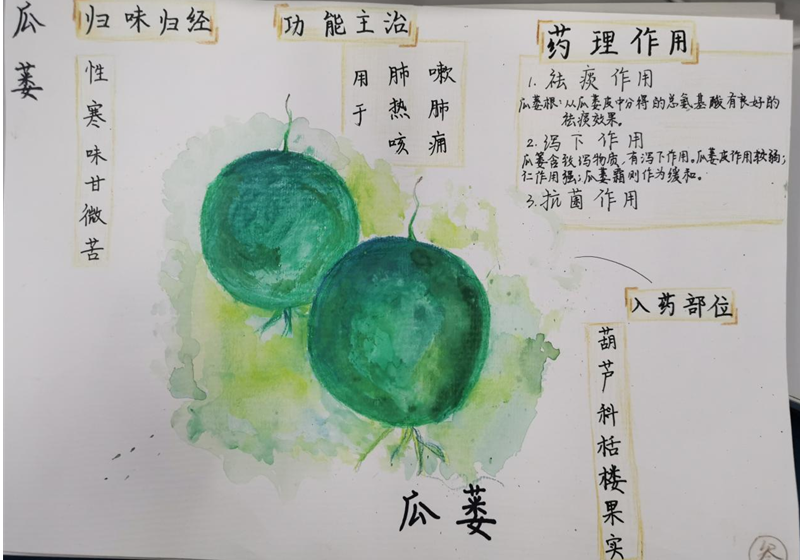 瓜蒌
归味归经
性寒味甘微苦
功能主治
用于
肺热咳
嗽肺痛
药理作用
1.祛痰作用
瓜蒌根:从瓜蒌皮中分得的总氨基酸有良好的
祛痰效果。
2.泻下作用
瓜蒌含致泻物质,有泻下作用。瓜蒌皮作用较弱;
仁作用强;瓜蒌霜则作为缓和。
3.抗菌作用
入药部位
葫芦科栝楼果实
瓜蒌